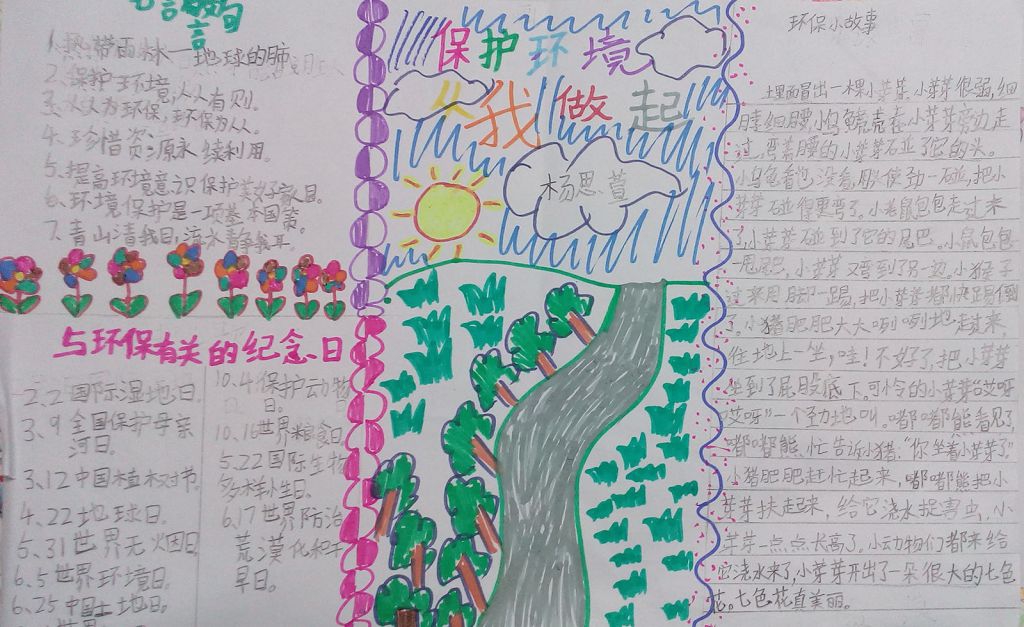 言
1.热带雨林——地球的肺
2.保护环境,人人有则。
3.人人为环保,环保为人人。
4.珍惜资源永续利用。
5.提高环境意识保护美好家园。
6.环境保护是一项基本国策。
7.青山清我目,流水静我耳。
与环保有关的纪念日
2.2国际湿地日。
3.9全国保护母亲
河日。
3.12中国植树节。
4.22地球日。
5.31世界无烟日
6.5世界环境日。
6.25中国土地日。
世界
10.4保护动物
日。
10.16世界粮食日
5.22国际生物
多样小生日。
6.17世界防治
荒漠化和干
旱日。
保护环境
从我做起
杨思萱
环保小故事
土里面冒出一棵小芽芽,小芽芽很弱,细
腰细腰,乌龟壳壳在小芽芽旁边走
过,弯着腰的小芽芽碰了它的头。
小乌龟看也没看,股使劲一碰,把小
芽芽碰得更弯了。小老鼠包包走过来
了小芽芽碰到了它的尾巴。小鼠包包
一甩尾,小芽芽又弯到了另一边。小猴子
过来用脚一踢,把小芽芽都快踢倒
了。小猪肥肥大大咧咧地走过来,
往地上一坐,哇!不好了,把小芽芽
坐到了屁股底下,可怜的小芽芽“哎呀
哎呀”一个劲地叫。嘟嘟熊看见了,
嘟嘟熊,忙告诉小猪:“你坐着小芽芽了”
小猪肥肥赶忙起来,嘟嘟熊把小
芽芽扶起来,给它浇水捉害虫,小
芽芽一点点长高了。小动物们都来给
它浇水来了,小芽芽开出了一朵很大的七色
花。七色花真美丽。